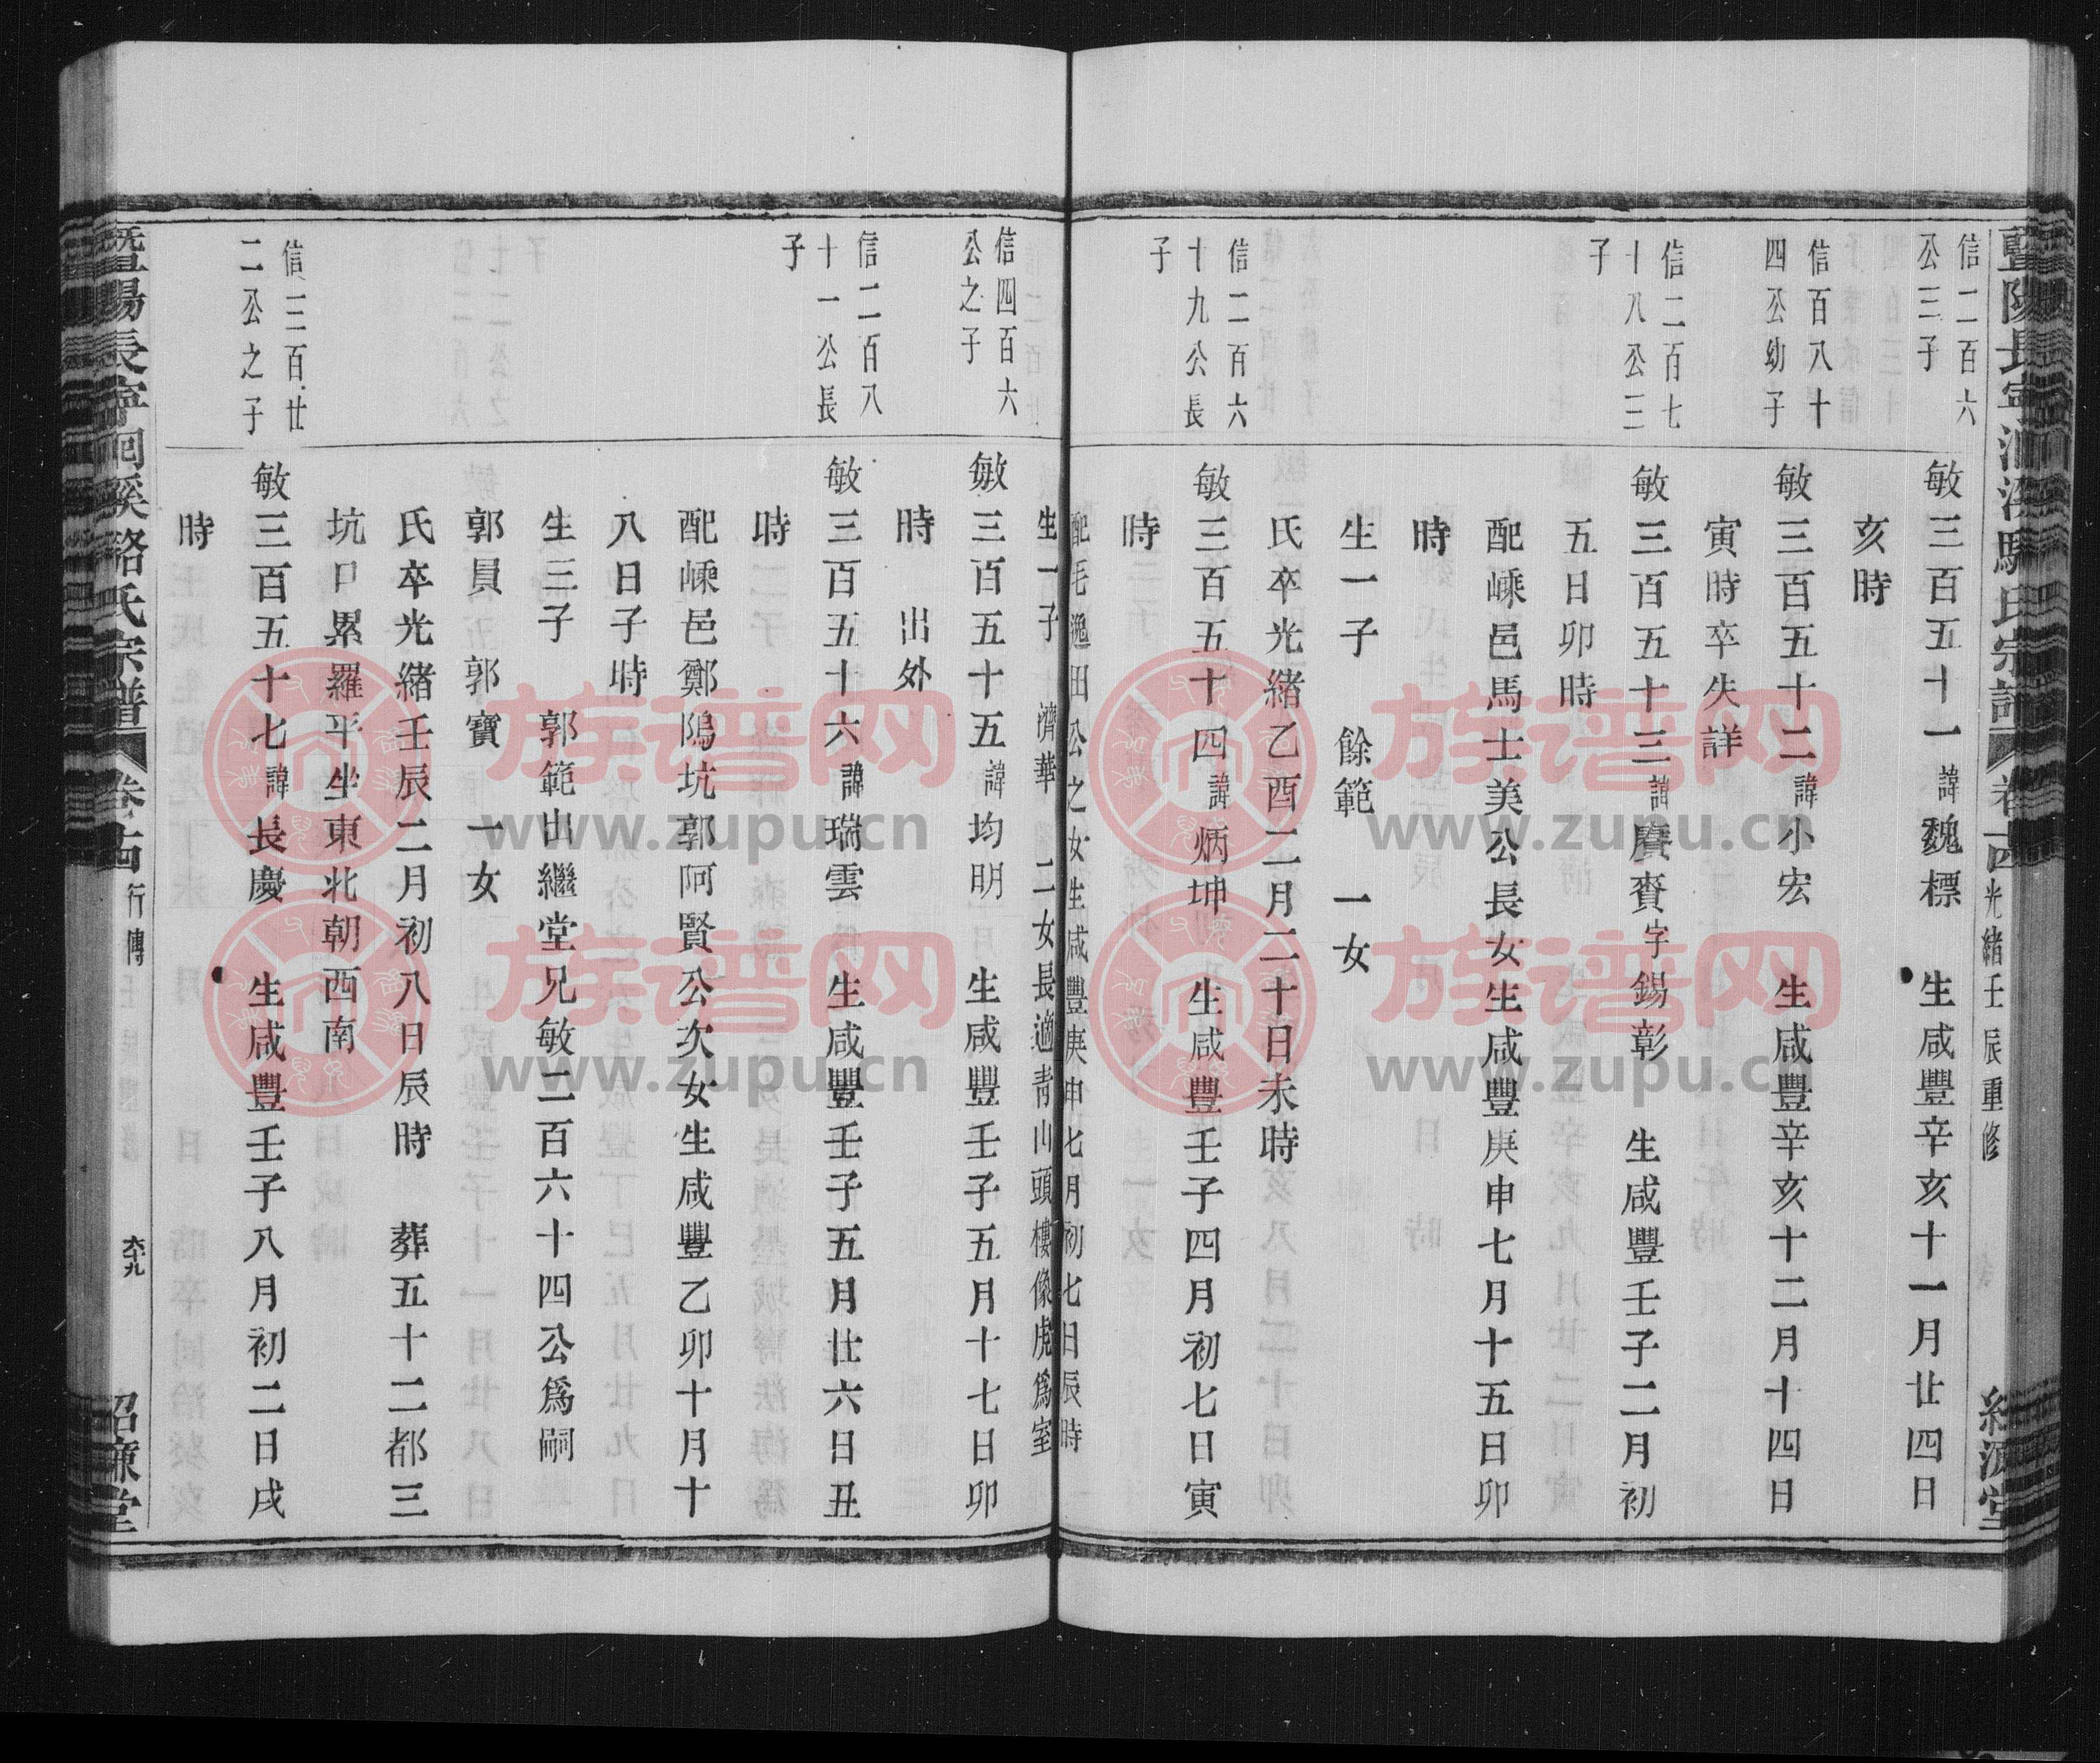 暨陽長寧洄溪駱氏宗譜
光緒壬辰重修
信二百六
公三子
敏三百五十一諱魏標 生咸豐辛亥十一月廿四日
亥時
信百八十
四公幼子
敏三百五十二諱小宏 生咸豐辛亥十二月十四日
寅時卒失詳
信二百七
十八公三
子
敏三百五十三諱賡賚字錫彰 生咸豐壬子二月初
五日卯時
配嵊邑馬士美公長女生咸豐庚申七月十五日卯
時
生一子 餘範 一女
氏卒光緒乙酉二月二十日未時
信二百六
十九公長
子
敏三百五十四諱炳坤 生咸豐壬子四月初七日寅
時
配毛逸田公之女生咸豐庚申七月初七日辰時
生一子 濟華 二女長適青山頭樓像虎為室
信四百六
公之子
敏三百五十五諱均明 生咸豐壬子五月十七日卯
時 出外
信二百八
十一公長
子
敏三百五十六諱瑞雲 生咸豐壬子五月廿六日丑
時
配嵊邑鄭鴿坑郭阿賢公次女生咸豐乙卯十月十
八日子時
生三子 郭範出繼堂兄敏二百六十四公為嗣
郭員 郭寶 一女
氏卒光緒壬辰二月初八日辰時 葬五十二都三
坑口累羅平坐東北朝西南
信三百廿
二公之子
敏三百五十七諱長慶 生咸豐壬子八月初二日戌
時
暨陽長寧洄溪駱氏宗譜
行傳
六十九
紹濂堂
族谱网
www.zupu.cn
族谱网
www.zupu.cn
族谱网
www.zupu.cn
族谱网
www.zupu.cn